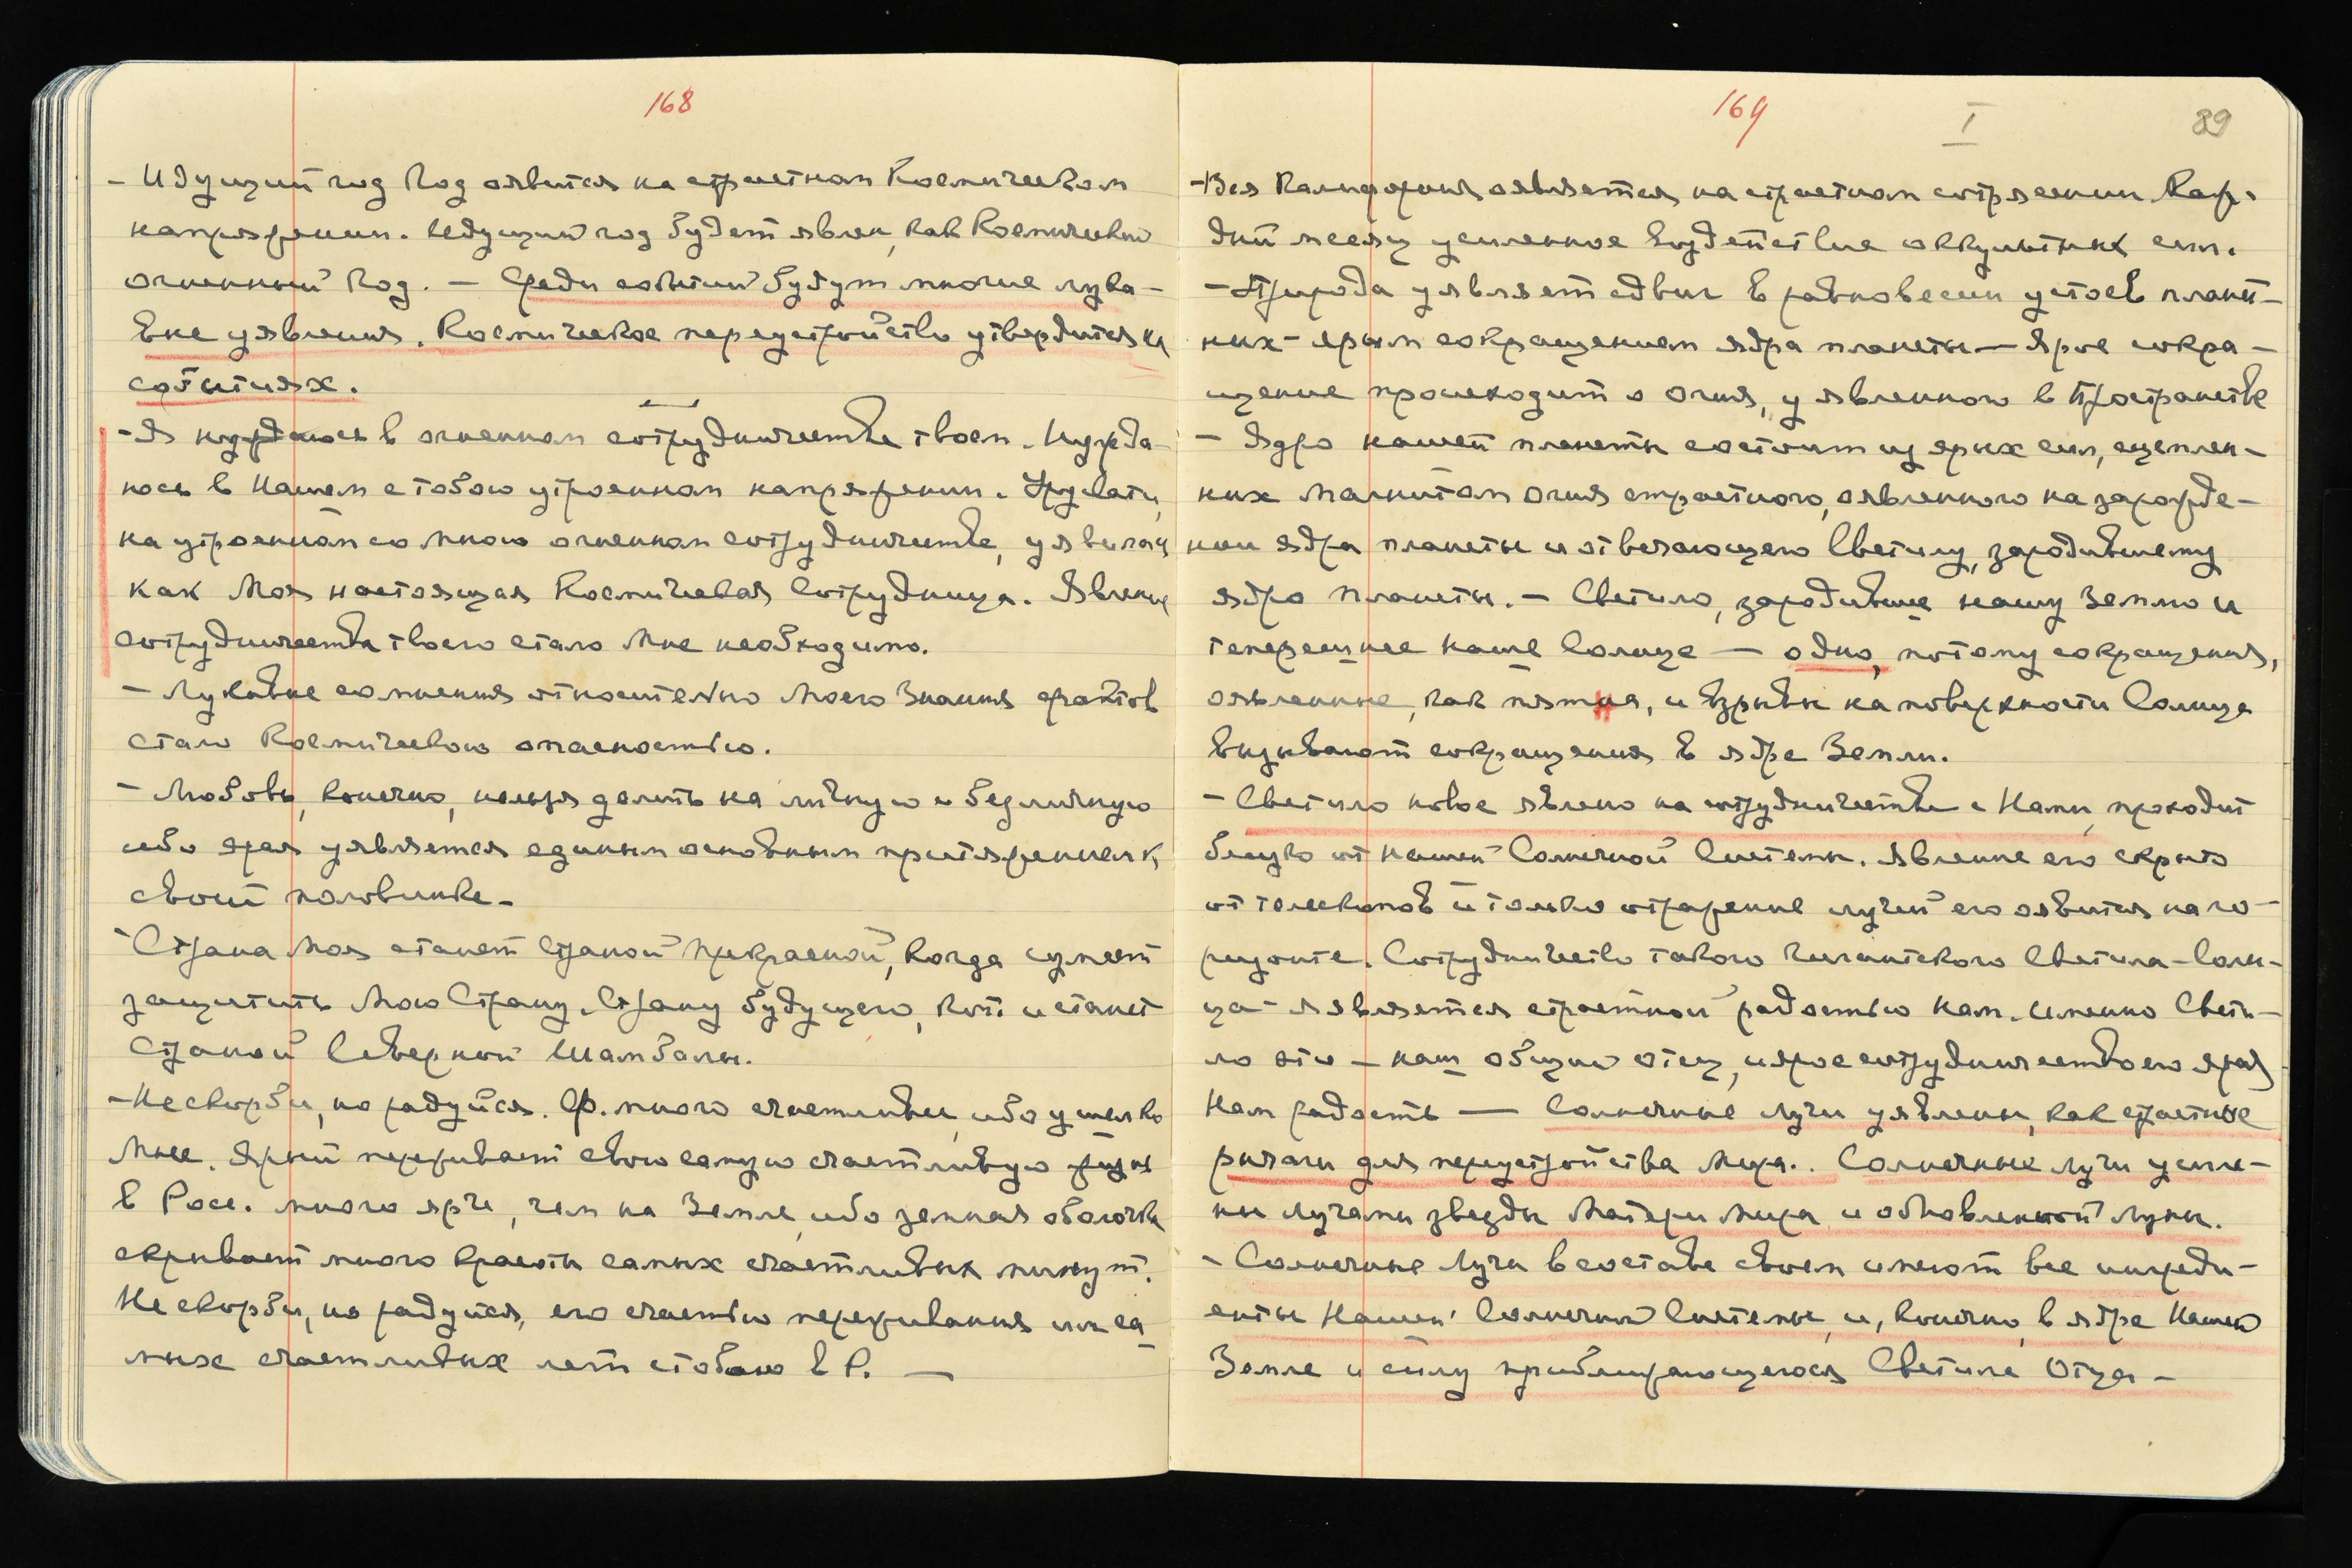 168
- Идущий год Год оявится на страстном Космическом
напряжении. Идущий год будет явлен, как Космически
огненный Год. – Среди событий будут многие лука-
вые уявления. Космическое переустройство утвердится на
событиях.
- Я нуждаюсь в огненном сотрудничестве твоем. Нужда-
юсь в Нашем с тобою утроенном напряжении. Урусвати,
на утроенном со Мною огненном сотрудничестве, уявилась
как Моя настоящая Космическая Сотрудница. Явление
сотрудничества твоего стало Мне необходимо.
- Лукавые сомнения относительно Моего Знания фактов
стало Космическою опасностью.
- Любовь, конечно, нельзя делить на личную и безличную
ибо ярая уявляется единым основным притяжением к
своей половинке -
- Страна Моя станет Страной Прекрасной, когда сумеет
защитить Мою Страну. Страну будущего, кот. и станет
Страной Северной Шамбалы.
- Не скорби, но радуйся. Ф. много счастливее, ибо ушел ко
Мне. Ярый переживает свою самую счастливую жизнь
в Росс. много ярче, чем на Земле, ибо земная оболочка
скрывает много красоты самых счастливых минут.
Не скорби, но радуйся, его счастью переживания им са-
мых счастливых лет с тобою в Р. —
169 I 89
- Вся Калифорния оявляется на страстном сотрясении. Каж-
дый месяц усиленное воздействие оккультных сил.
- Природа уявляет сдвиг в равновесии устоев планет-
ных – ярым сокращением ядра планеты — Ярое сокра-
щение происходит о Огня, уявленного в Пространстве
- Ядро нашей планеты состоит из ярых сил, сцеплен-
ных Магнитом Огня страстного, оявленного на зарожде-
нии ядра планеты и отвечающего Светилу, зародившему
ядро Планеты. – Светило, зародившее нашу Землю и
теперешнее наше Солнце — одно, потому сокращения,
оявленные, как пятна, и взрывы на поверхности Солнца
вызывают сокращения в ядре Земли.
- Светило новое явлено на сотрудничестве с Нами, проходит
близко от нашей Солнечной Системы. Явление его скрыто
от телескопов и только отражение лучей его оявится на го-
ризонте. Сотрудничество такого гигантского Светила-Солн-
ца – яявляется страстной радостью Нам. Именно Свети-
ло это – наш общий Отец, и ярое сотрудничество его ярая
Нам радость — Солнечные лучи уявлены, как страстные
рычаги для переустройства Мира. Солнечные лучи усиле-
ны лучами звезды Матери Мира и обновленной Луны.
- Солнечные Лучи в составе своем имеют все ингреди-
енты Нашей Солнечной Системы, и, конечно, в ядре Нашей
Земле и силу приближающегося Светила Отца -